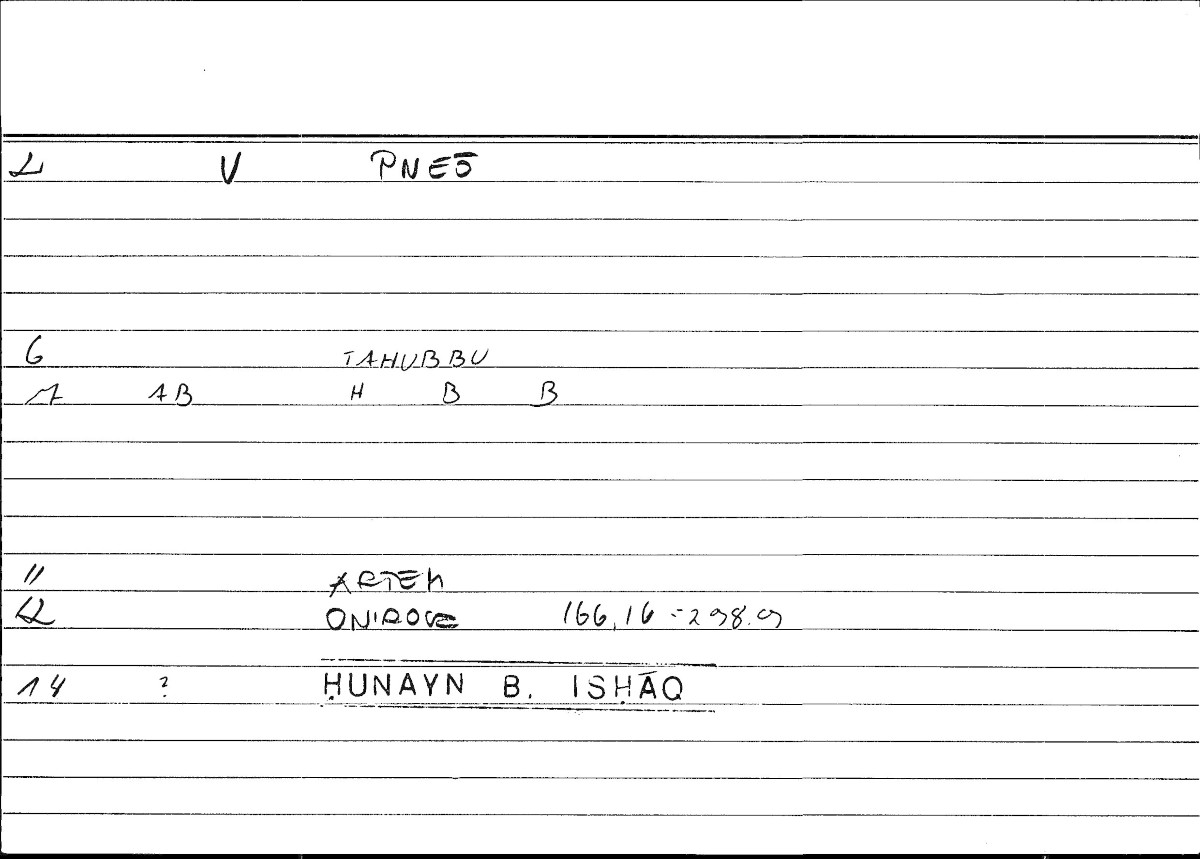 2 V PNEŌ
6 TAHUBBU
7 AB H B B
11 ARTEM
12 ONIROCR 166,16 = 298.9
14 ? ḤUNAYN B. ISḤĀQ